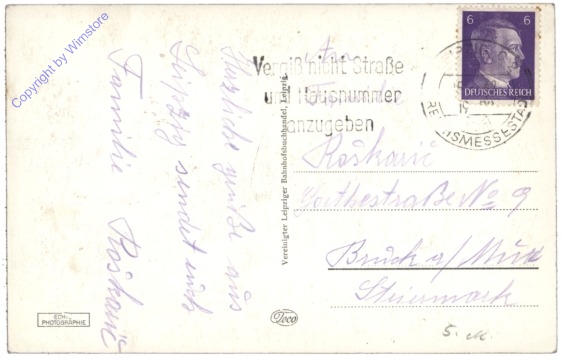 Copyright by Wimstore
Herzliche Grüße aus
Leipzig sendet euch
Familie Roškarić
ECHTE
PHOTOGRAPHIE
Vereinigter Leipziger Bahnhofsbuchhandel, Leipzig.
Deco
Vergiß nicht Straße
und Hausnummer
anzugeben
6 6
DEUTSCHES REICH
REICHSMESSESTADT
An
Familie
Roškarić
Goethestraße No 9
Bruck a/Mur
Steiermark
5. M.